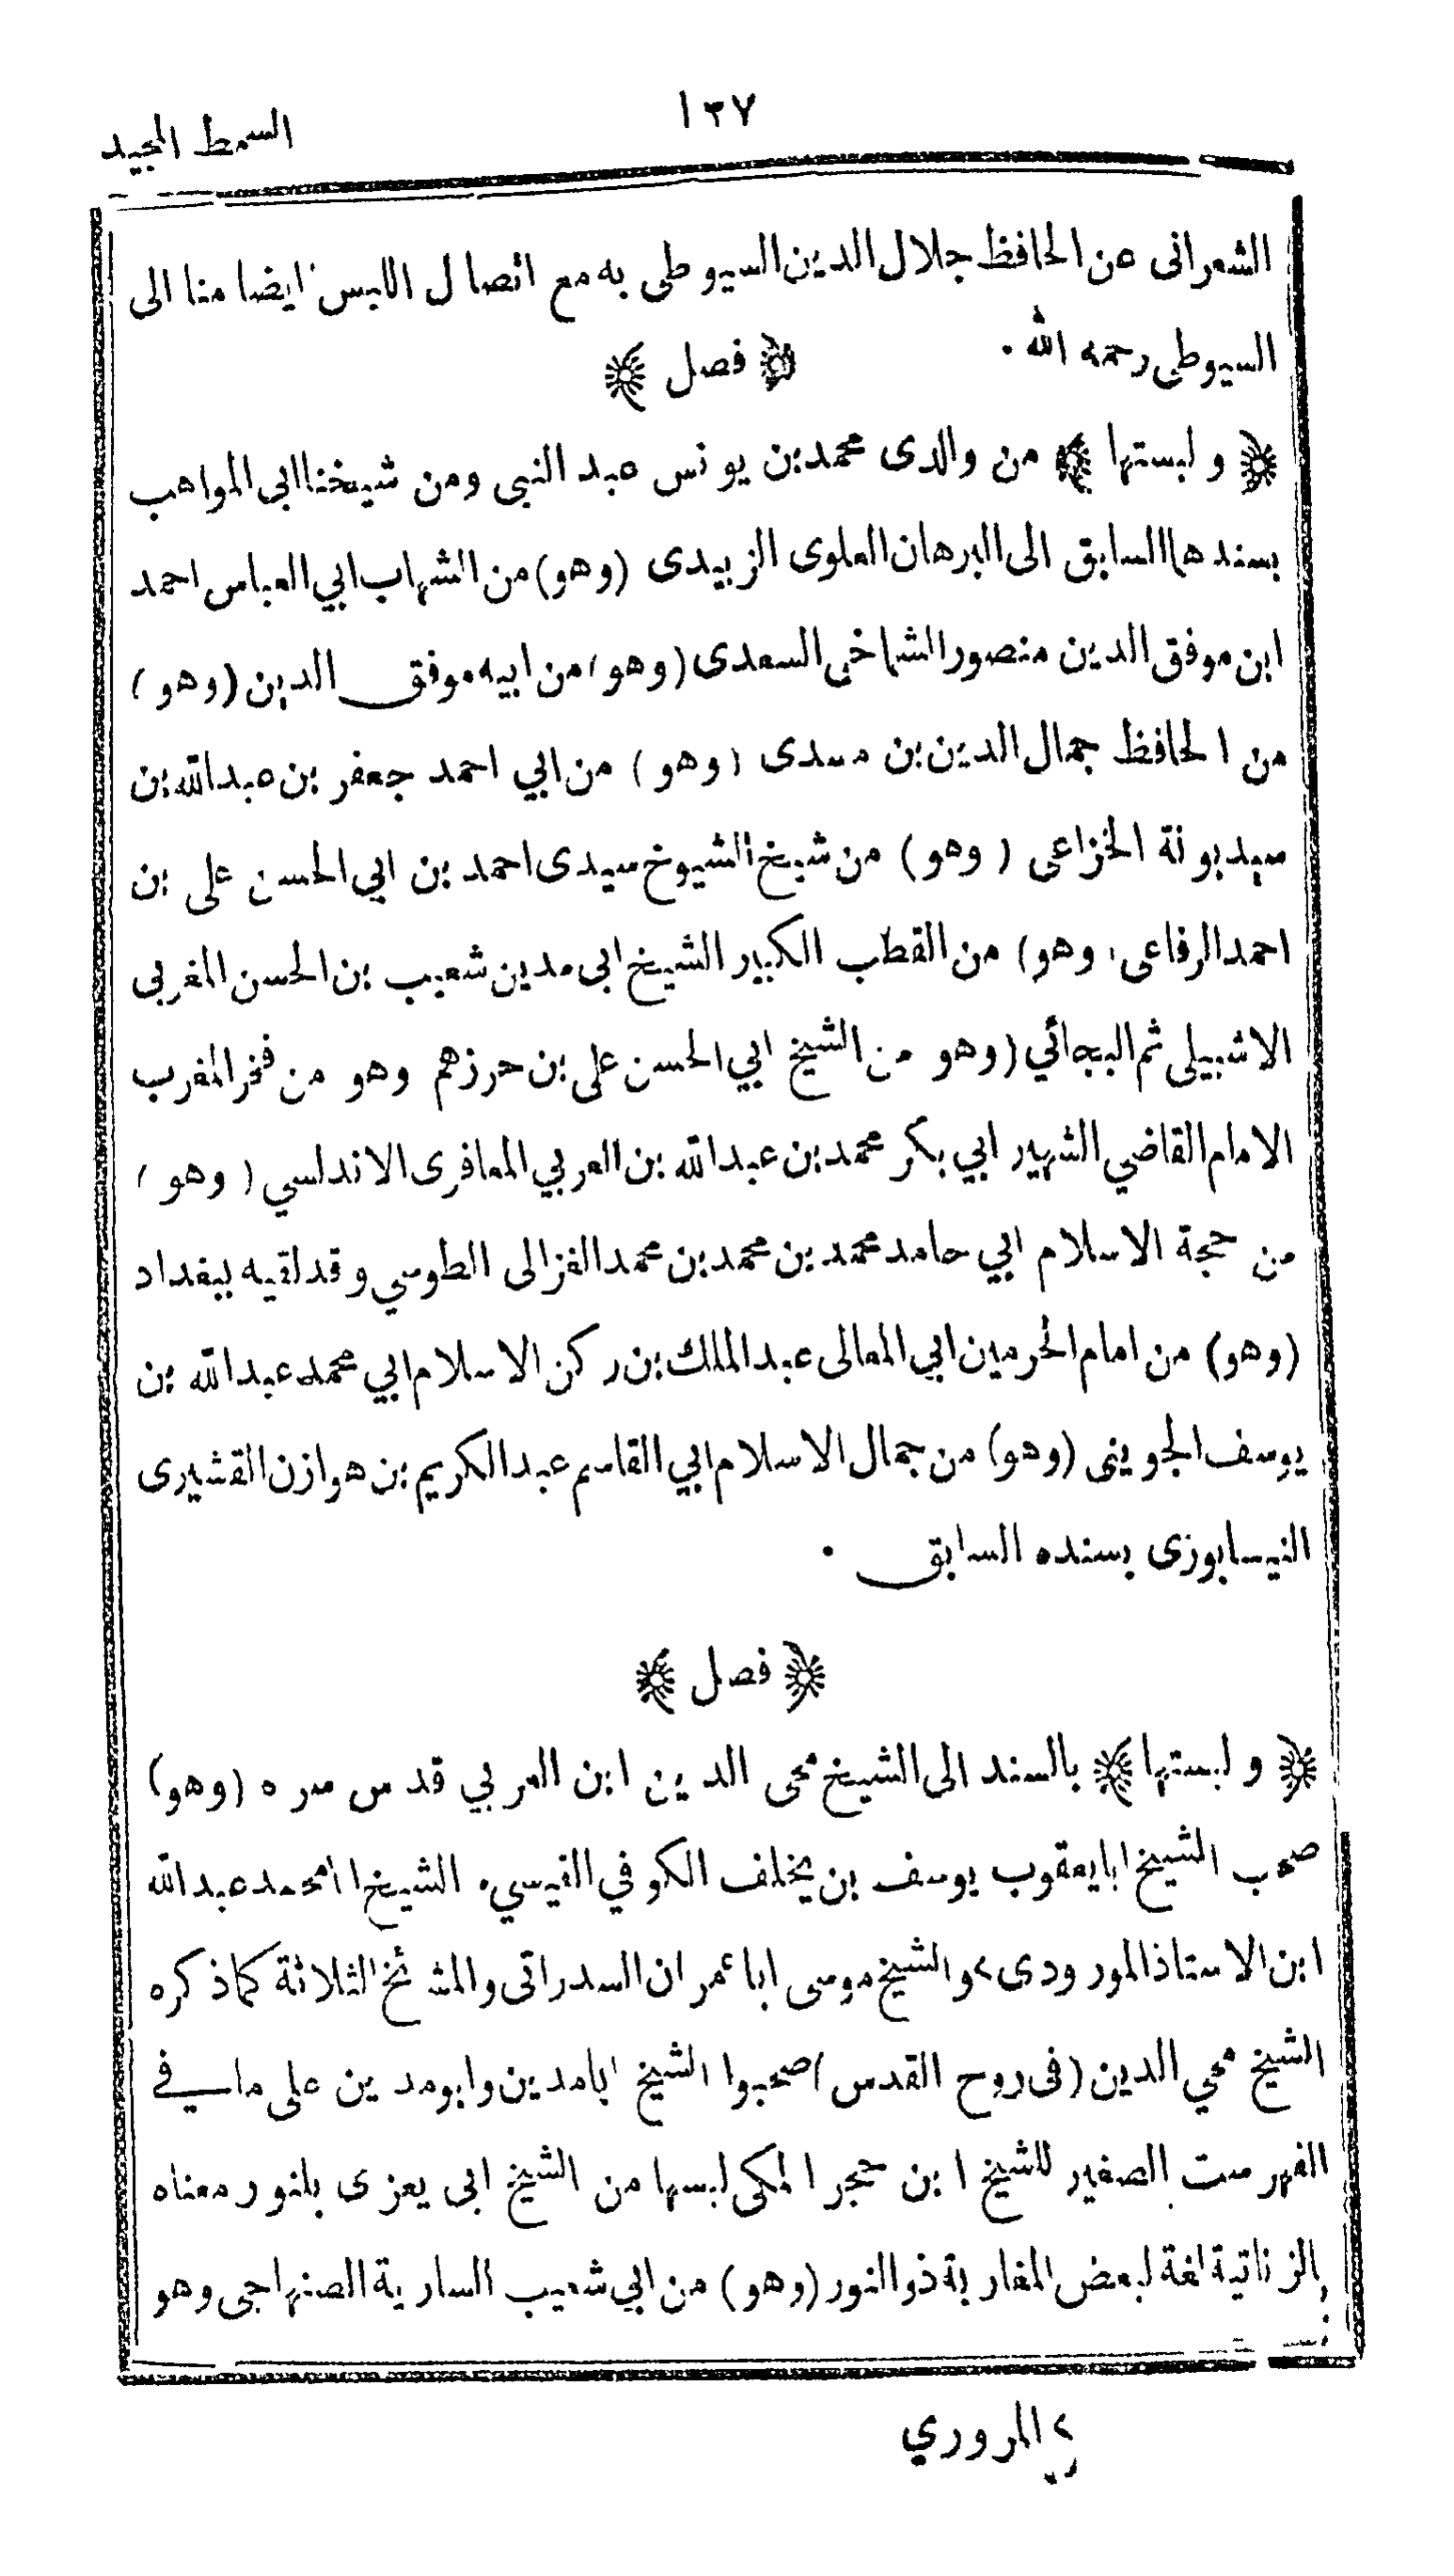 ١٣٧
السمط المجيد
الشعرانى عن الحافظ جلال الدين السيوطى به مع اتصال اللبس ايضا منا الى
السيوطى رحمه الله .
﴿ فصل ﴾
﴿ و لبستها ﴾ من والدى محمد بن يونس عبد النبى ومن شيخنا ابى المواهب
بسندهما السابق الى البرهان العلوى الزبيدى (وهو) من الشهاب ابي العباس احمد
ابن موفق الدين منصور الشماخى السعدى (وهو) من ابيه موفق الدين (وهو)
من الحافظ جمال الدين بن مسدى (وهو) من ابي احمد جعفر بن عبد الله بن
سيد بونة الخزاعى (وهو) من شيخ الشيوخ سيدى احمد بن ابي الحسن على بن
احمد الرفاعى (وهو) من القطب الكبير الشيخ ابى مدين شعيب بن الحسن المغربى
الاشبيلى ثم البجائي (وهو من الشيخ ابي الحسن على بن حرزهم وهو من فخر المغرب
الامام القاضي الشهير ابي بكر محمد بن عبد الله بن العربي المعافرى الاندلسي (وهو)
من حجة الاسلام ابي حامد محمد بن محمد بن محمد الغزالى الطوسي وقد لقيه ببغداد
(وهو) من امام الحرمين ابي المعالى عبد الملك بن ركن الاسلام ابي محمد عبد الله بن
يوسف الجوينى (وهو) من جمال الاسلام ابي القاسم عبد الكريم بن هوازن القشيرى
النيسابوزى بسنده السابق .
﴿ فصل ﴾
﴿ و لبستها ﴾ بالسند الى الشيخ محى الدين ابن العربي قدس سره (وهو)
صحب الشيخ ابا يعقوب يوسف بن يخلف الكوفي القيسي، الشيخ ا امحمد عبد الله
ابن الاستاذ المورودى ٢ والشيخ موسى ابا عمران السدراتى والمشائخ الثلاثة كما ذكره
الشيخ محي الدين (فى روح القدس) صحبوا الشيخ ابا مدين وابو مدين على ما في
الفهرست الصغير للشيخ ابن حجر المكى لبسها من الشيخ ابى يعزى بلنور معناه
بالزناتية لغة لبعض المغاربة ذو النور (وهو) من ابي شعيب السارية الصنهاجى وهو
٢ المروري